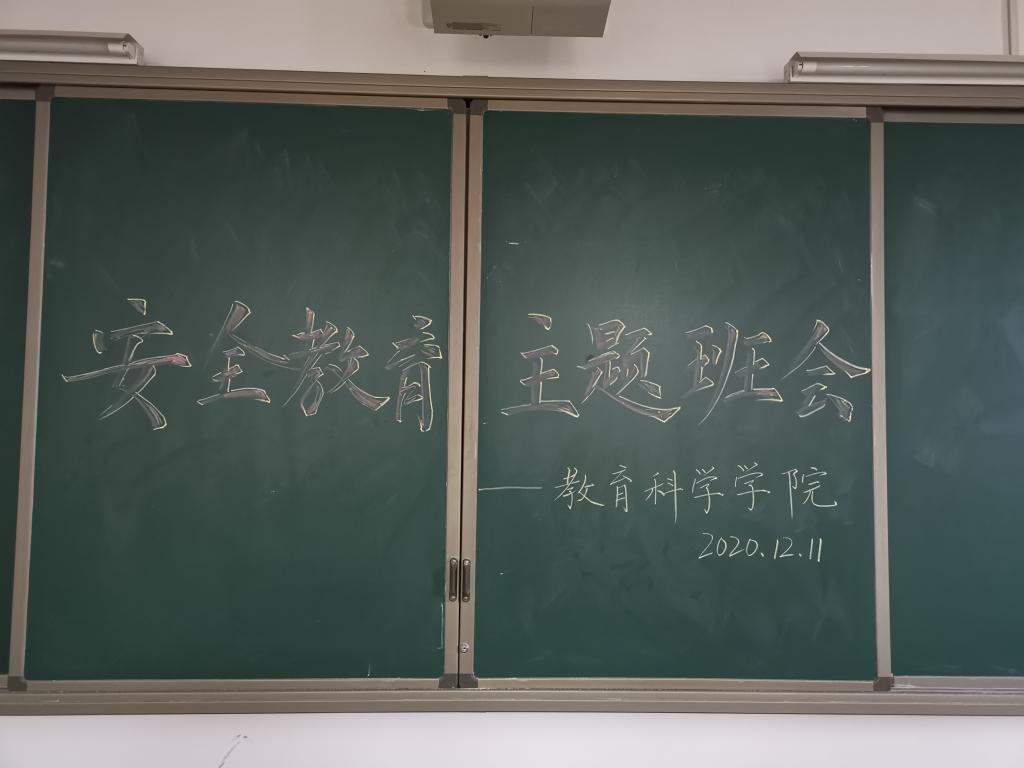 安全教育主题班会
—教育科学学院
2020.12.11